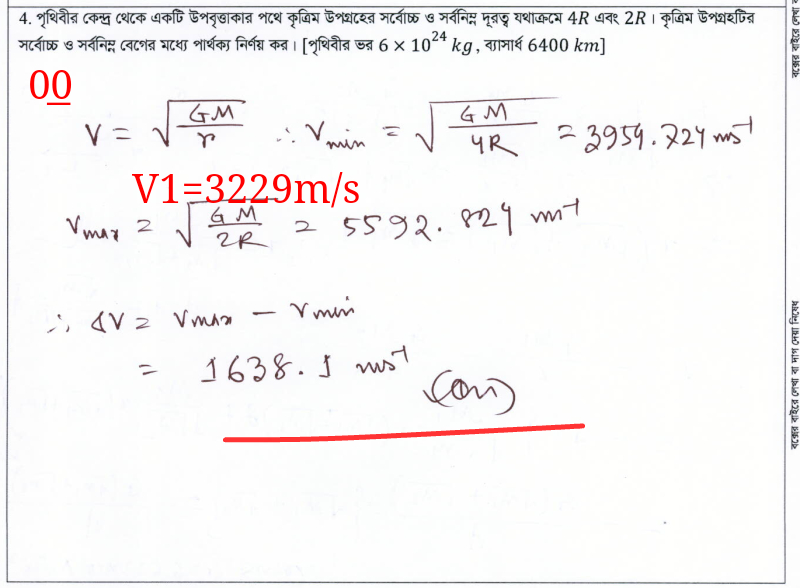 4. পৃথিবীর কেন্দ্র থেকে একটি উপবৃত্তাকার পথে কৃত্রিম উপগ্রহের সর্বোচ্চ ও সর্বনিম্ন দূরত্ব যথাক্রমে 4R এবং 2R। কৃত্রিম উপগ্রহটির
সর্বোচ্চ ও সর্বনিম্ন বেগের মধ্যে পার্থক্য নির্ণয় কর। [পৃথিবীর ভর 6 × 10^24 kg, ব্যাসার্ধ 6400 km]
00
V = √(GM/r) ∴ Vmin = √(GM/4R) = 3954.724 ms⁻¹
V1=3229m/s
Vmax = √(GM/2R) = 5592.824 ms⁻¹
∴ ΔV = Vmax − Vmin
= 1638.1 ms⁻¹
(Ans)
বক্সের বাইরে লেখা বা দাগ দেয়া নিষেধ